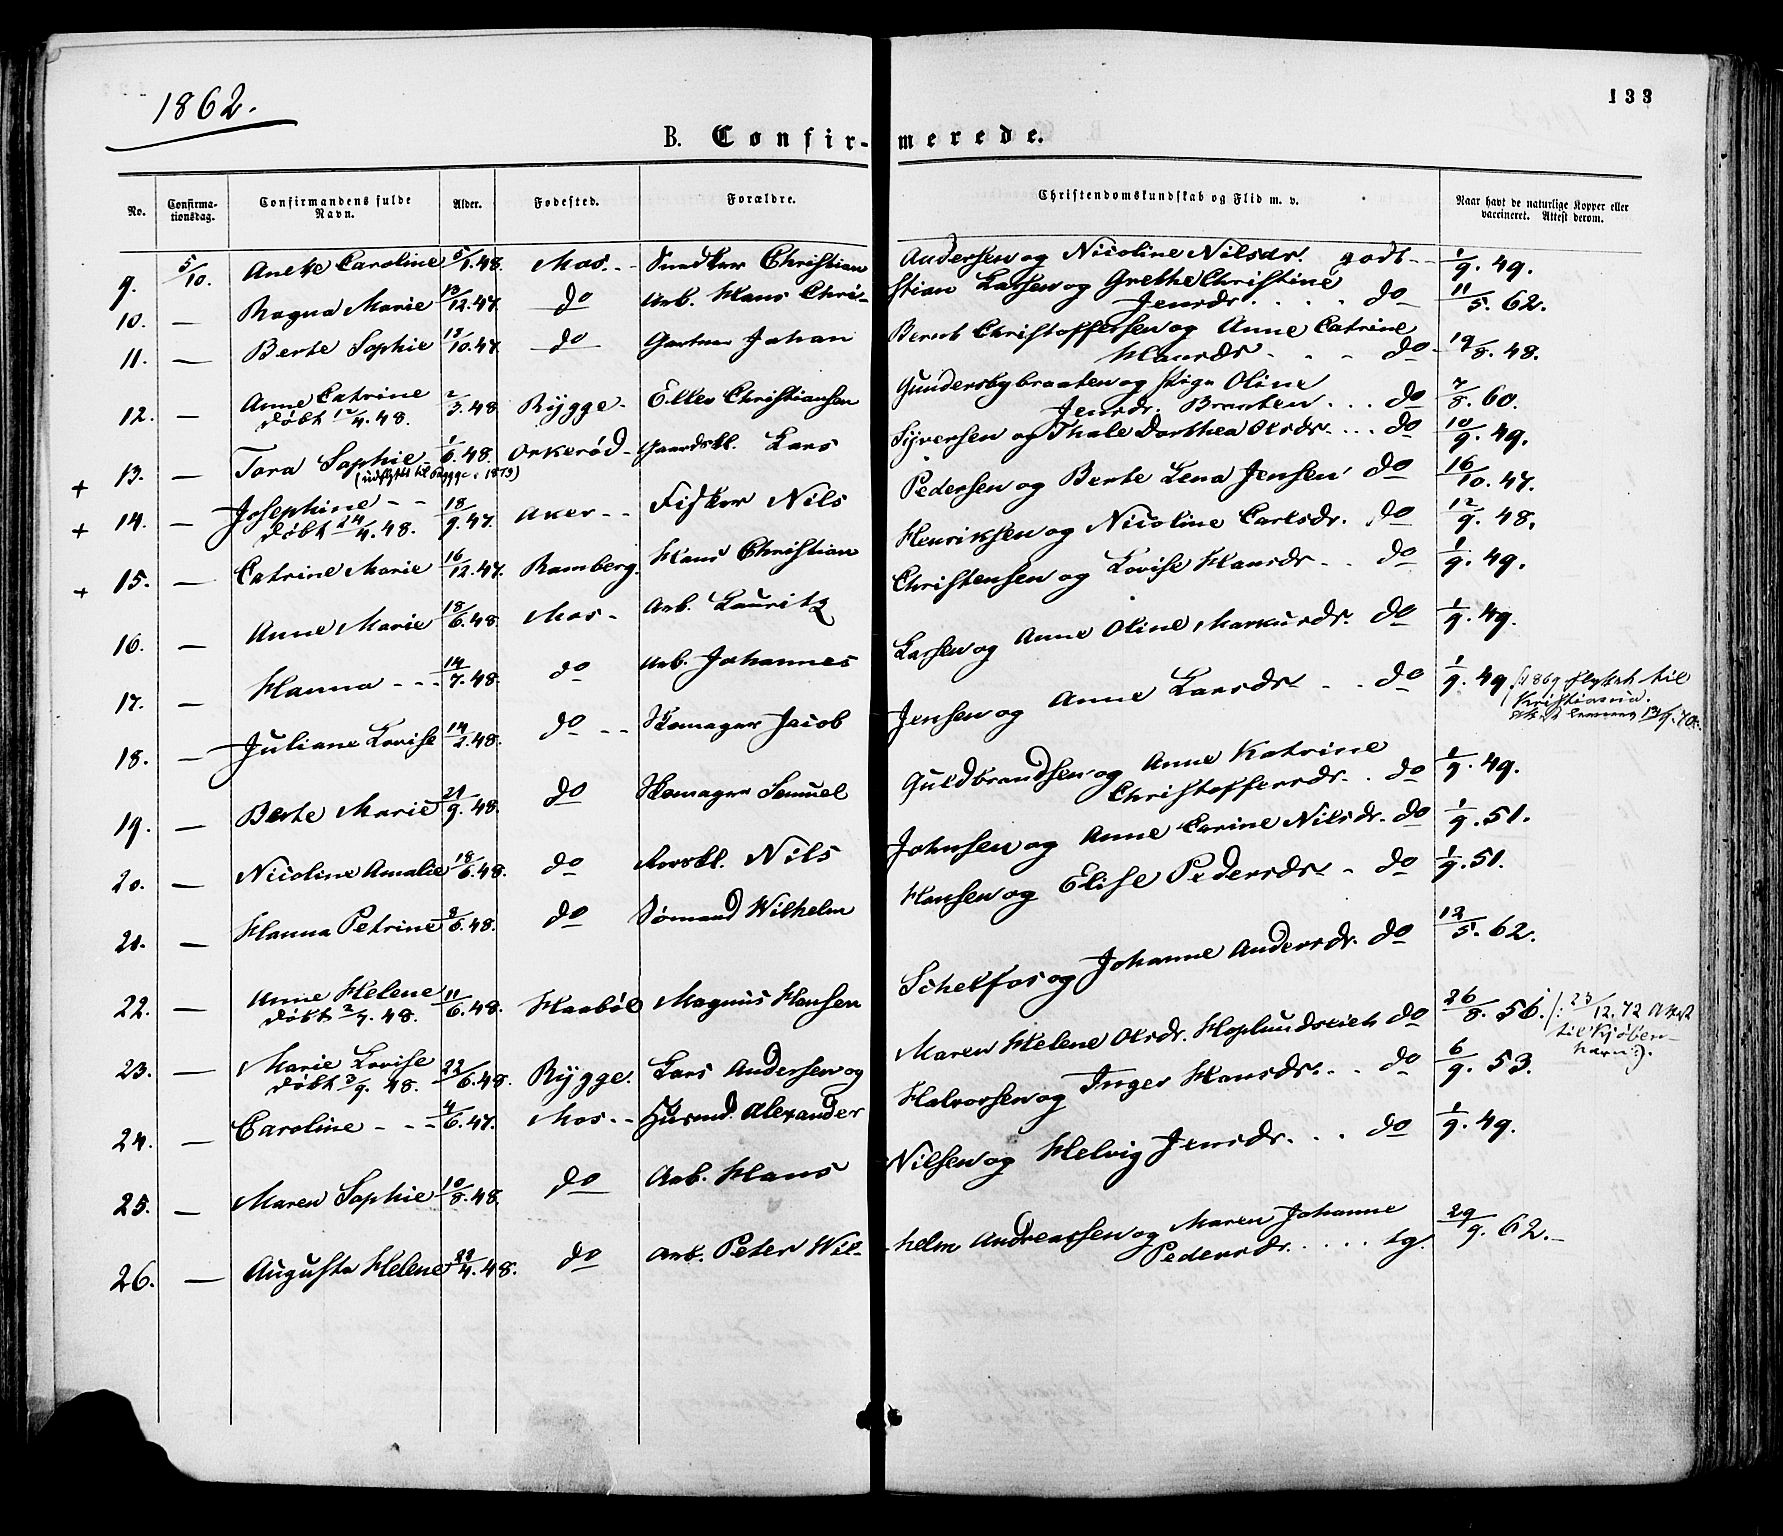 1862.
133
B. Confir- merede.
No. Confirma-tionsdag. Confirmandens fulde Navn. Alder. Fødested. Forældre. Christendomskundskab og Flid m. v. Naar havt de naturlige Kopper eller vaccineret. Attest derom.
9. 5/10. Anette Caroline 5/1.48. Mos. - - Christian Andersen og Nicoline Nilsdr. godt - - 1/9. 49.
10. — Ragna Marie 13/12.47. do Arb. Hans Chri- stian Larsen og Grethe Christine
Jensdr. . . . . do 11/5. 62.
11. — Berte Sophie 13/10.47. do Gartner Johan Bernt Christoffersen og Anne Catrine
Hansdr - - - do - 19/8. 48.
12. — Anne Catrine 2/3.48 Rygge - Ellev Christiansen Gundersbybraaten og Oline
døbt 12/4.48. Jensdr. Braaten . . . do 7/8. 60.
13. — Tora Sophie - 1/6.48. Orkerød - Gaardbr. Lars Syversen og Thale Dorthea Olsdr. . . . do 10/9. 49.
+ (udflyttet til Rygge 1873)
+ 14. — Josephine - - 18/9.47. Aker - - Fisker Nils Pedersen og Berte Lena Jensen do 16/10. 47.
døbt 24/4.48.
+ 15. — Catrine Marie 16/12.47. Ramberg. Hans Christian Henriksen og Nicoline Carlsdr. do 12/9. 48.
16. — Anne Marie 18/6.48. Mos - Arb. Lauritz Christensen og Lovise Hansdr - - do 1/9. 49.
17. — Hanna - - - 14/7.48. do Arb. Johannes Larsen og Anne Oline Markusdr. do 1/9. 49.
18. — Juliane Lovise 14/2.48. do - - Skomager Jacob Jensen og Anne Larsdr - - - do 1/9. 49. (1869 flyttet til
Kristiania.
19. — Berte Marie 21/9.48. do Skomager Samuel Guldbrandsen og Anne Katrine
Christoffersdr. . do 1/9. 49.
20. — Nicoline Amalie 18/6.48. do Nils Johnsen og Anne Carine Nilsdr. do 1/9. 51.
21. — Hanna Petrine 8/6.48. do Sømand Wilhelm Hansen og Elise Pedersdr. - do 1/9. 51.
22. — Anne Helene 11/6.48. Haabøl Magnus Hansen Schelfos og Johanne Andersdr. do 12/5. 62.
døbt 2/7. 48.
23. — Marie Lovise 22/6.48. Rygge. Lars Andersen og Maren Helene Olsdr. do 26/8. 56. /: 23/12.72
døbt 3/9. 48. til Kjøben-
havn :/.
24. — Caroline - - - 4/6.47. Mos - - Husmd. Alexander Halvorsen og Inger Hansdr. . - do 6/9. 53.
25. — Maren Sophie 10/8.48. do Arb. Hans Nilsen og Helvig Jensdr. . . . do 1/9. 49.
26. — Augusta Helene 22/4.48. do Arb. Peter Wil- helm Andreassen og Maren Johanne
Pedersdr. . . . . . tg. 29/9. 62. -